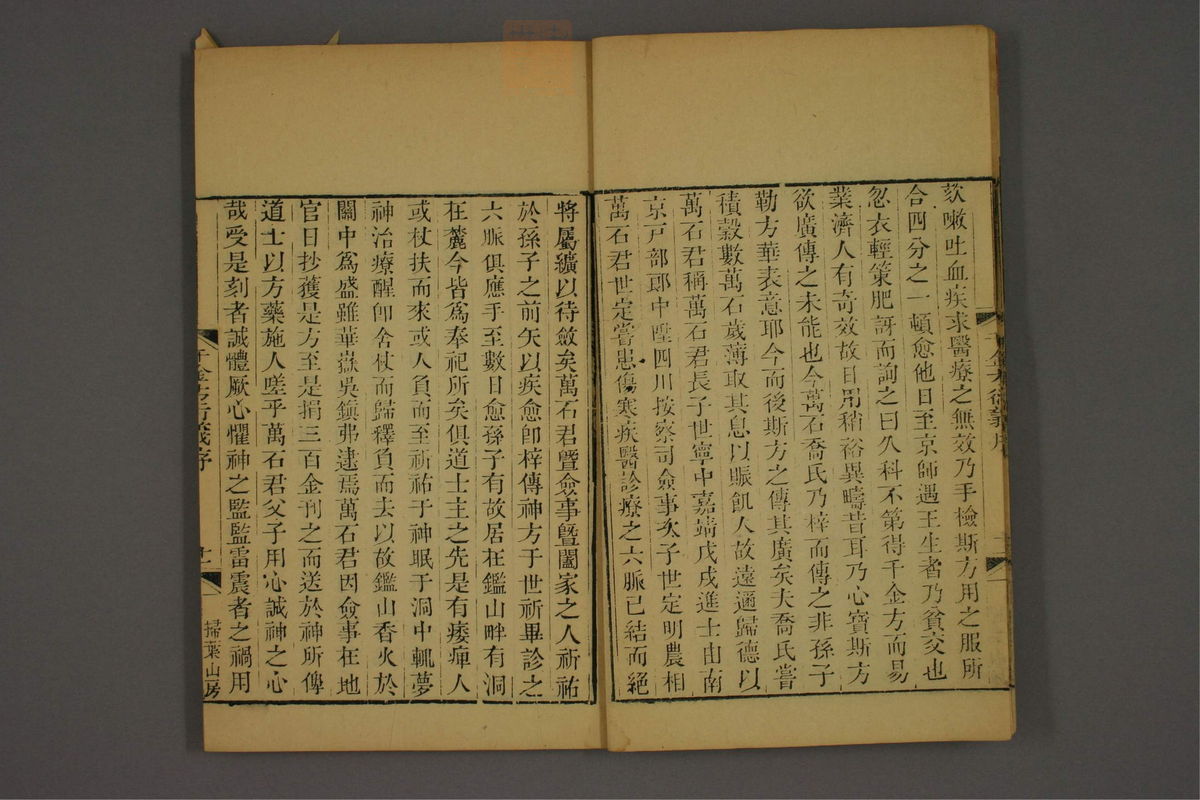 欬嗽吐血疾求醫療之無效乃手檢斯方用之服所
合四分之一頓愈他日至京師遇王生者乃貧交也
忽衣輕策肥訝而詢之曰久科不第得千金方而易
業濟人有奇效故日用稍裕異疇昔耳乃心寶斯方
欲廣傳之未能也今萬石喬氏乃梓而傳之非孫子
勒方華表意耶今而後斯方之傳其廣矣夫喬氏嘗
積穀數萬石歲薄取其息以賑飢人故遠邇歸德以
萬石君稱萬石君長子世寧中嘉靖戊戌進士由南
京戸部郎中陞四川按察司僉事次子世定明農相
萬石君世定嘗患傷寒疾醫診療之六脈已結而絕
將屬纊以待斂矣萬石君暨僉事暨闔家之人祈祐
於孫子之前矢以疾愈卽梓傳神方于世祈畢診之
六脈俱應手至數日愈孫子有故居在鑑山畔有洞
在麓今皆爲奉祀所矣俱道士主之先是有痿痺人
或杖扶而來或人負而至祈祐于神眠于洞中輒夢
神治療醒卽舍杖而歸釋負而去以故鑑山香火於
關中爲盛雖華嶽吳鎮弗逮焉萬石君因僉事在地
官日抄獲是方至是捐三百金刊之而送於神所俾
道士以方藥施人嗟乎萬石君父子用心誠神之心
哉受是刻者誠體厥心懼神之監監雷震者之禍用
千金方衍義序
掃葉山房